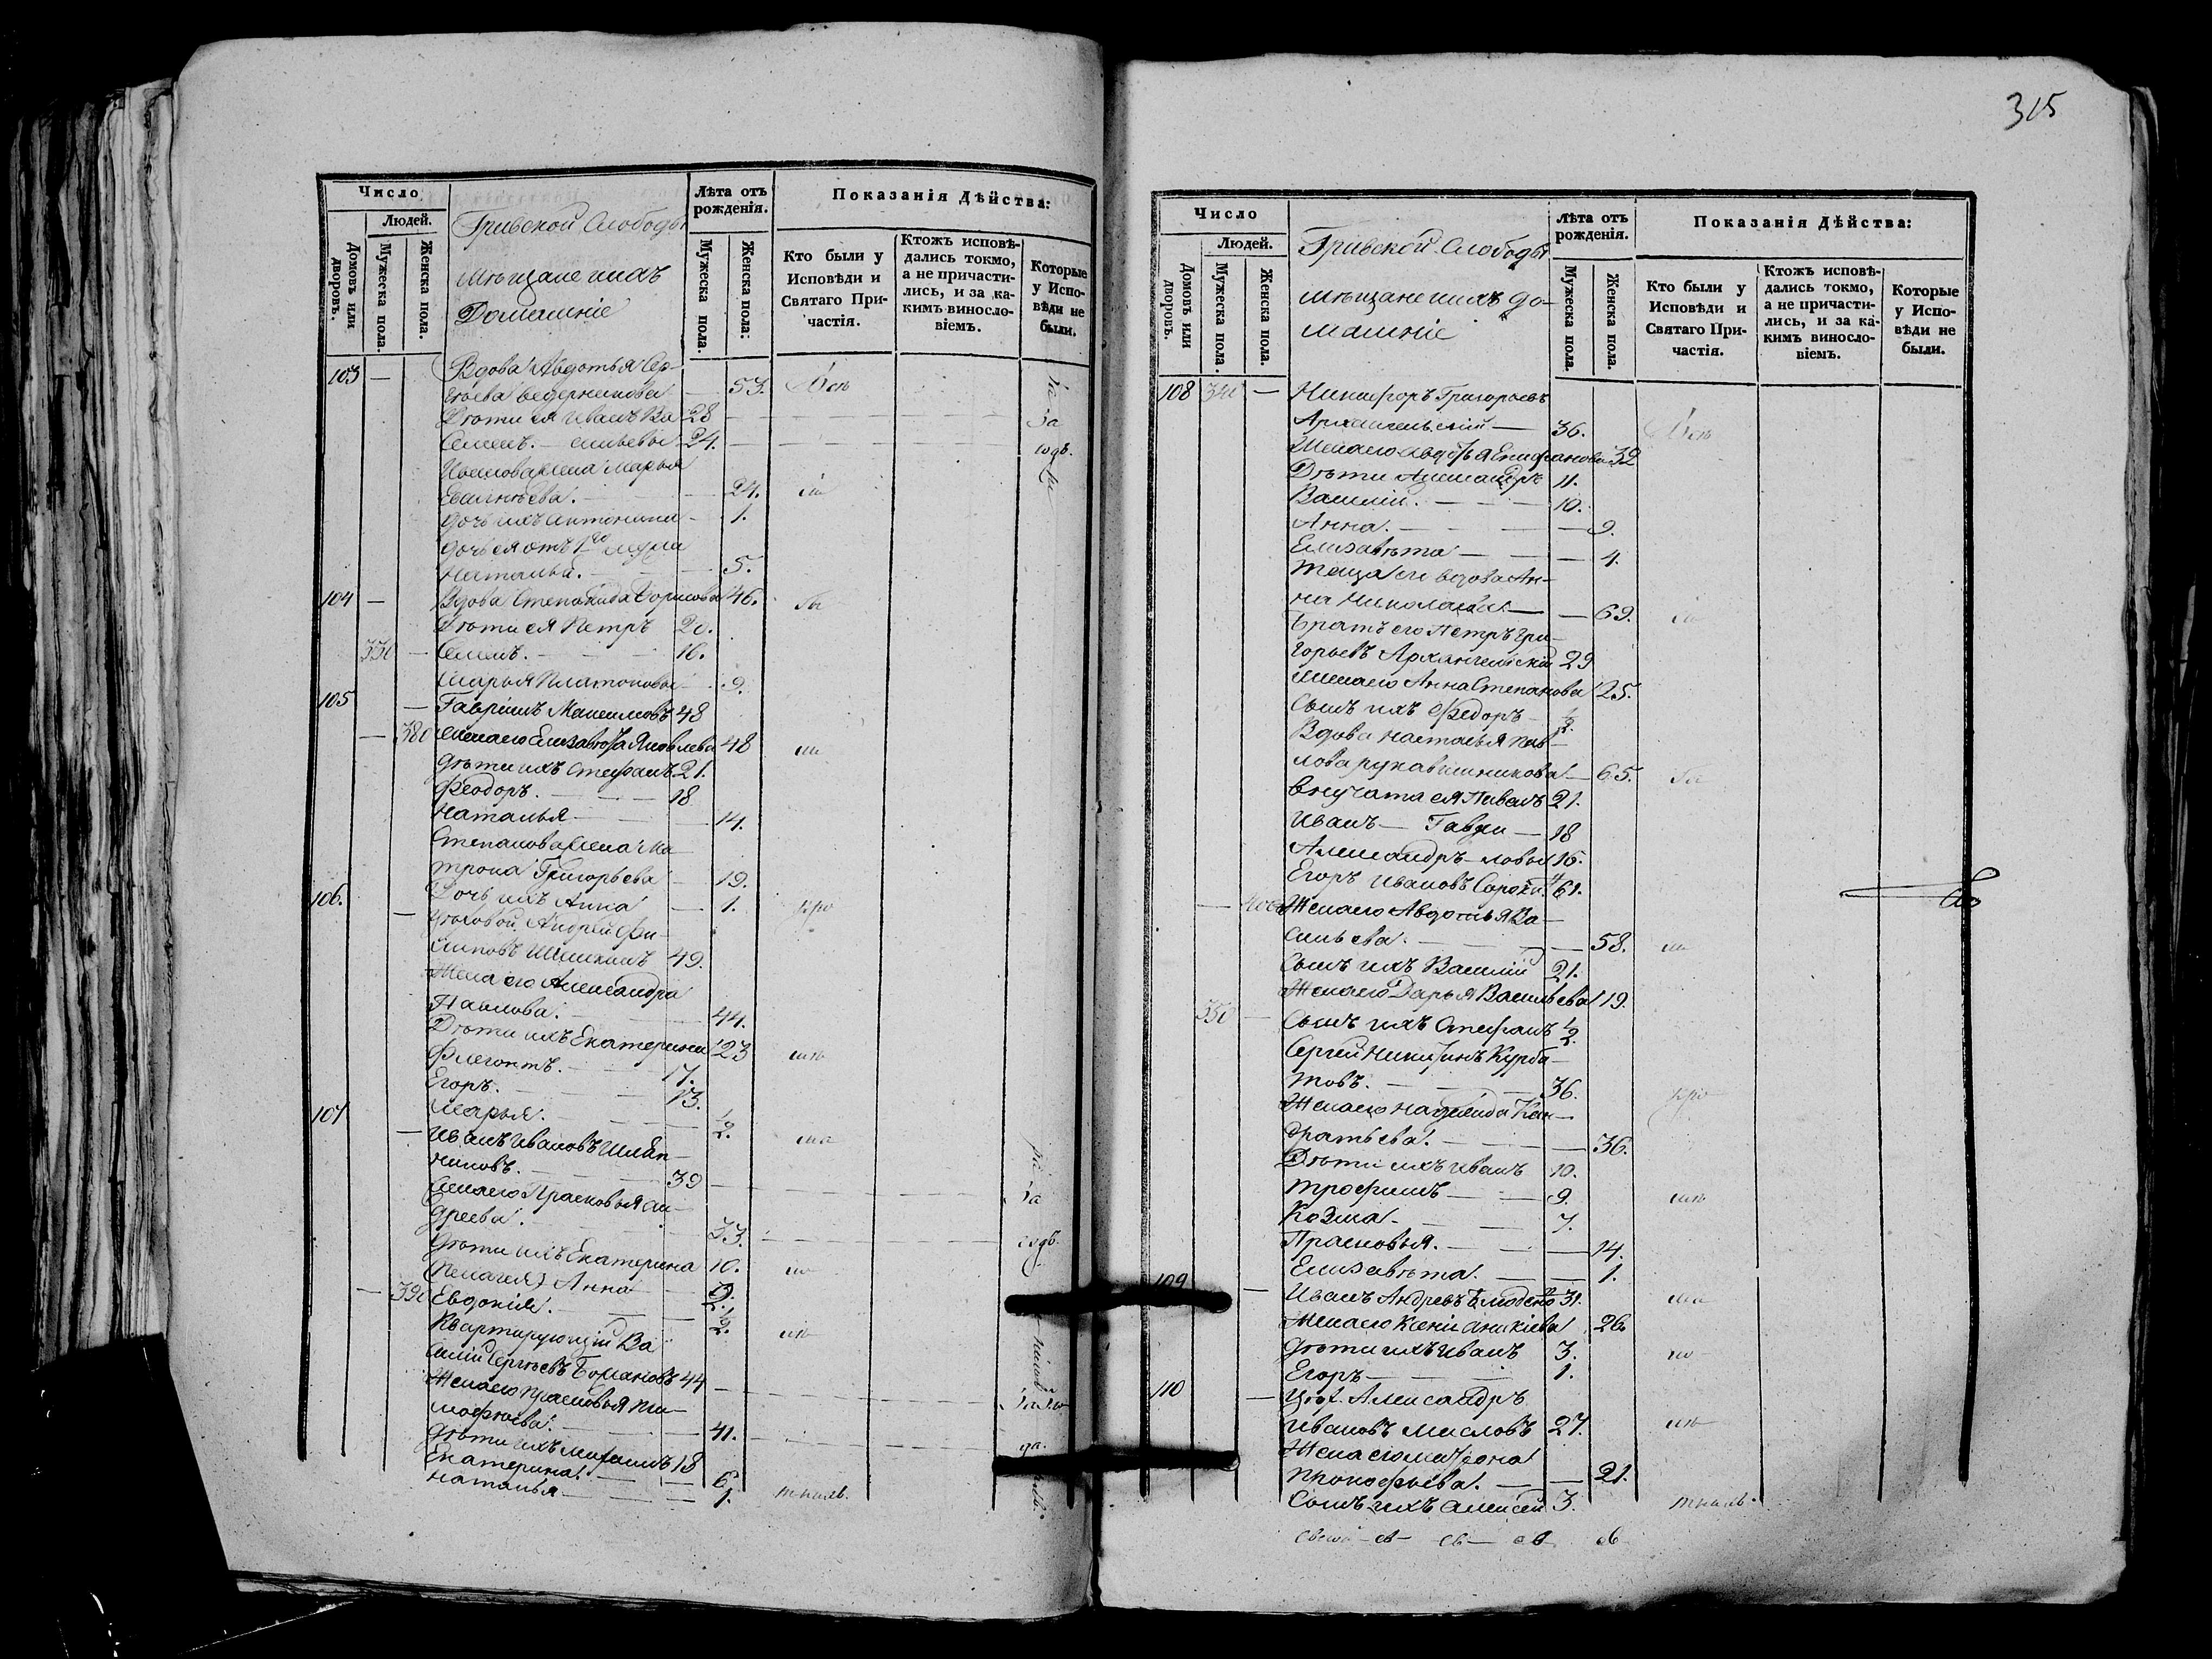 315
Число
Людей.
Домовъ или дворовъ.
Мужеска пола.
Женска пола.
Гривской Слободы
мѣщане и ихъ
Домашніе
Лѣта отъ рожденія.
Мужеска пола.
Женска пола.
Показанія Дѣйства:
Кто были у Исповѣди и Святаго Причастія.
Ктожъ исповѣдались токмо, а не причастились, и за какимъ винословіемъ.
Которые у Исповѣди не были.
103 — Вдова Авдотья Сер-
гѣева Ведерникова — 53.
Дѣти ея Иванъ Ва 28
Семенъ. — сильевы 24.
Иванова жена Марья
24.
Дочь ихъ Антонина — 1.
Дочь ея отъ 1го мужа
Наталья. — 5.
104 — Вдова Степанида Борисова 46.
Дѣти ея Петръ 20.
Семенъ. — 16.
Марья Платоновы — 9.
105 — Гавріилъ Максимовъ 48
— 380 Жена его Елизавета Яковлева 48
Дѣти ихъ Стефанъ 21.
Феодоръ. — 18
Наталья — 14.
Степанова жена Ма
трона Григорьева — 19.
106. Дочь ихъ Анна — 1.
— Цеховой Андрей Фи-
липовъ Шишкинъ 49.
Жена его Александра
Павлова. — 44.
Дѣти ихъ Екатерина 23
Флегонтъ. — 17.
Егоръ. — 13.
107 Марья. — 1/2.
— Иванъ Ивановъ Шляп-
никовъ. — 39
Жена его Прасковья Ан-
дреева. — 33.
Дѣти ихъ Екатерина 10.
(Пелагея) Анна
— 390 Евдокія. — 1/2.
Квартирующій Ва
силій Сергѣевъ 44
Жена его Прасковья Ти-
мофеева. — 41.
Дѣти ихъ Михаилъ 18
Екатерина. — 6
Наталья — 1.
Число
Людей.
Домовъ или дворовъ.
Мужеска пола.
Женска пола.
Гривской Слободы
мѣщане и ихъ до-
машніе
Лѣта отъ рожденія.
Мужеска пола.
Женска пола.
Показанія Дѣйства:
Кто были у Исповѣди и Святаго Причастія.
Ктожъ исповѣдались токмо, а не причастились, и за какимъ винословіемъ.
Которые у Исповѣди не были.
108 340 — Никифоръ Григорьевъ
Архангельскій — 36.
Жена его Авдотья Епифанова 32
Дѣти Александръ 11.
Василій. — 10.
Анна. — 9.
Елизавета — 4.
Теща его вдова Ан-
на Николаева. — 69.
Братъ его Петръ Гри-
горьевъ Архангельскій 29
Жена его Анна Степанова 25.
Сынъ ихъ Федоръ — 1/2.
Вдова Наталья Пав-
лова Рукавишникова — 65.
Внучата ея Павелъ 21.
Иванъ — Гаври — 18
Александръ — ловы 16.
Егоръ Ивановъ 61.
— 400 Жена его Авдотья Ва-
сильева. — 58.
Сынъ ихъ Василій 21.
Жена его Дарья Васильева 19.
350 — Сынъ ихъ Стефанъ 1/2.
Сергей Никитинъ Курба-
товъ. — 36.
Жена его Надежда Кон-
дратьева. — 36.
Дѣти ихъ Иванъ 10.
Трофимъ — 9.
Козма — 7.
Прасковья. — 14.
Елизавета. — 1.
109 — Иванъ Андреевъ 31.
Жена его Ксенія Аникіева 26.
Дѣти ихъ Иванъ 3.
Егоръ — 1.
110 — Цех. Александръ
Ивановъ Масловъ 27.
Жена его Матрона
Прокофьева. — 21.
Сынъ ихъ Алексей 3.